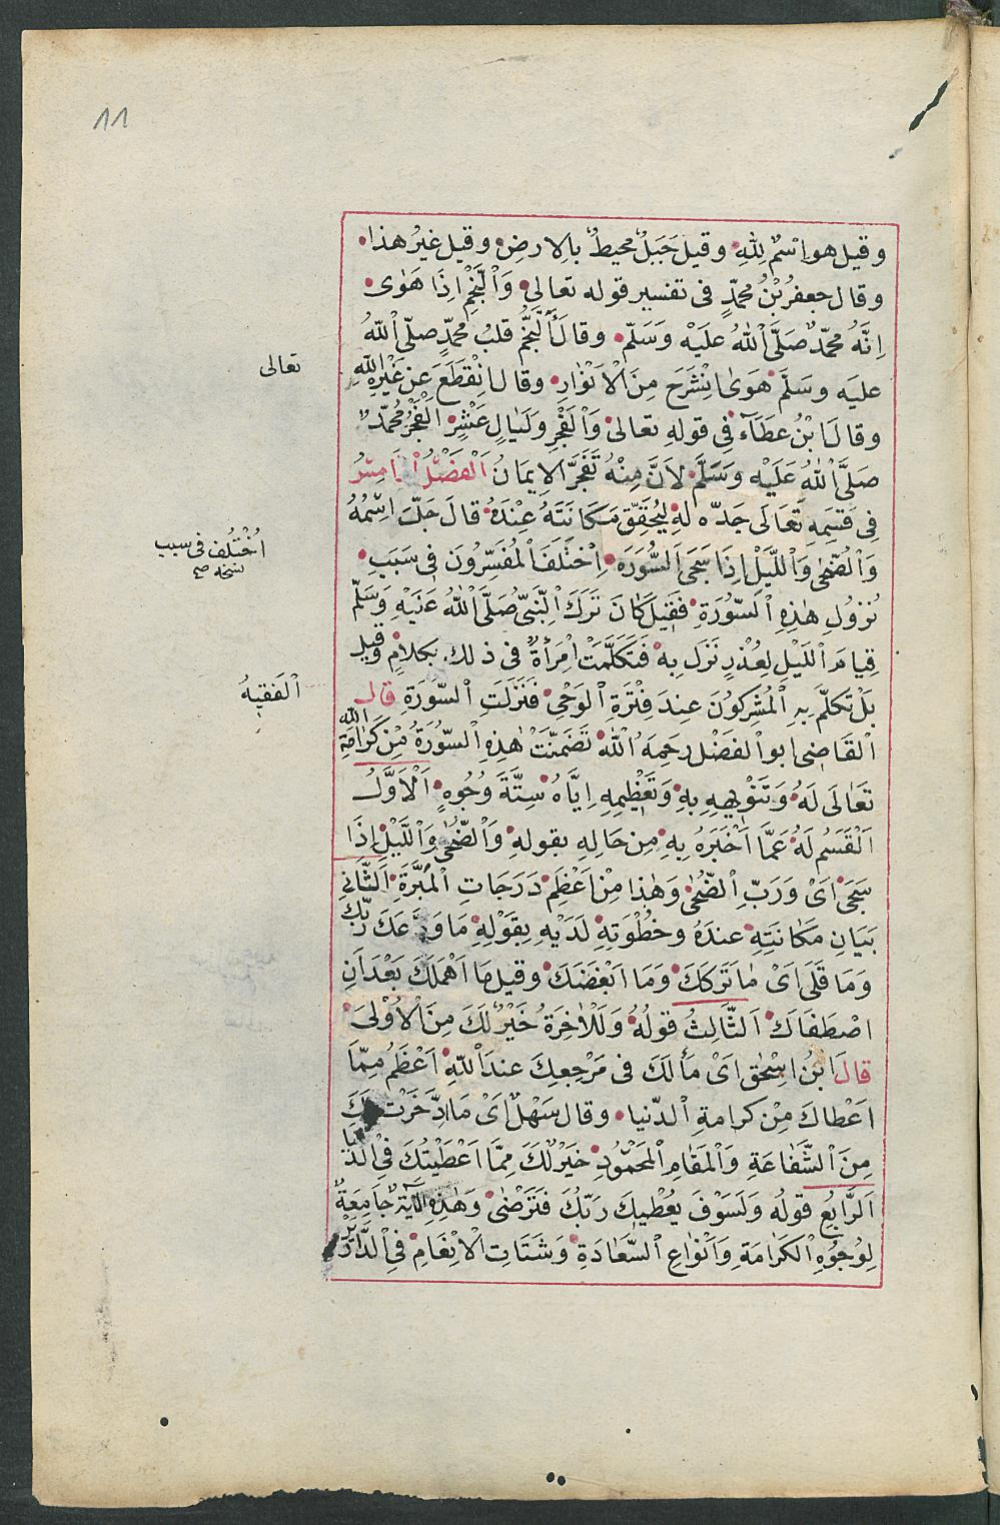 11
وقيل هو اسْمٌ لِلّٰهِ وقيل جَبَلٌ محيطٌ بالارضِ وقيل غيرُ هذا
وقال جعفرُ بْنُ محمّدٍ فى تفسير قوله تعالى وَالْنَّجْمِ اِذَا هَوٰى
اِنَّهُ محمّدٌ صَلَّى اللهُ علَيْهِ وَسَلَّم وقال اَلنَّجْمُ قلبُ محمّدٍ صلّى اللهُ
عليه وسلَّم هَوٰى انْشَرَحَ مِنَ الْاَنْوارِ وقال انْقَطَعَ عن غَيْرِ اللهِ
تعالى
وقال ابْنُ عطَآء فى قولهِ تعالىٰ وَالْفَجْرِ وَلَيَالٍ عَشْرٍ الْفَجْرُ مُحَمّدٌ
صَلَّى اللهُ عَلَيْهِ وَسَلَّمَ لِاَنَّ مِنْهُ تَفَجَّرَ الاِيمَانُ اَلْفَصْلُ الْخَامِسُ
فِى قَسَمِهِ تَعَالَى جَدّه لَهِ لِيُحَقِّقَ مَكَانَتَهُ عِنْدَهُ قالَ جَلّ اسْمُهُ
وَالْضُّحٰى وَالْلَّيْلِ اِذَا سَجَى السُّورَة اِخْتَلَفَ الْمُفَسِّرُونَ فِى سَبَبِ
اُخْتُلِف فى سبب
نسخه صح
نُزُولِ هٰذِهِ السّورَةِ فَقِيلَ كَانَ تَرَكَ النَّبِىُّ صَلَّى اللهُ عَلَيْهِ وَسَلَّم
قِيَامَ الْلَيْلِ لِعُذْرٍ نَزَلَ بِهِ فَتَكَلَّمَتْ امْرَأةٌ فى ذلك بكلامٍ وقيل
بَلْ تكلّمَ بِهِ الْمُشْرِكُونَ عِندَ فِتْرَةِ الوَحْىِ فَنَزَلَتِ السّورَةِ قال
الفَقِيهُ
القَاضِى ابو الفضْل رحِمَهُ الله تَضَمَنّتْ هٰذِهِ السّورَةُ مِنْ كَرَامَةِ الله
تَعَالَى لَهُ وَتَنْوِيهِهِ بِهِ وَتَعْظِيمِهِ اِيَّاهُ سِتَّةَ وُجُوهٍ اَلْاَوَّلُ
اَلْقَسَمُ لَهُ عَمَّا اَخْبَرَهُ بِهِ مِن حَالِهِ بقولهِ وَالضُّحٰى وَاللَّيْلِ اِذَا
سَجَى اَىْ وَرَبِّ الضُّحٰى وَهٰذا مِنْ اَعْظَمِ دَرَجَاتِ الْمَبَرَّةِ اَلثَّانِى
بَيَانِ مَكَانَتِهِ عندَهُ وحُظْوَتِهِ لَدَيْهِ بِقَوْلِهِ مَا وَدَّعَكَ رَبّكَ
وَمَا قَلَى اَىْ مٰا تَرَكَكَ وَمَا اَبْغَضَكَ وقيل مَا اَهْمَلَكَ بَعْدَ اَنِ
اصْطَفَاكَ اَلثَّالِثُ قولُهُ وَلَلْاٰخِرَةُ خَيْرٌ لَكَ مِنَ الْاُوْلَى
قالَ ابنُ اِسْحٰق اَىْ مَالَكَ فى مَرْجِعِكَ عندَ اللهِ اَعْظَمُ مِمّا
اَعْطاكَ مِنْ كرامةِ الدّنيا وقال سَهْلٌ اَىْ مَا ادَّخَرْتُ لَكَ
مِنَ الشَّفٰاعَةِ وَالْمَقَامِ الْمَحْمُودِ خَيْرٌ لَكَ مِمّا اَعْطَيْتُكَ فى الدّنيا
اَلرَّابِعُ قولُه وَلَسَوْفَ يُعْطيكَ رَبُّكَ فَتَرْضٰى وَهٰذِهِ الآيَةُ جَامِعَةٌ
لِوُجُوهِ الكَرَامَةِ وَاَنْوٰاعِ السَّعَادَةِ وَشَتَاتِ الْاِنْعَامِ فى الدَّارَيْن